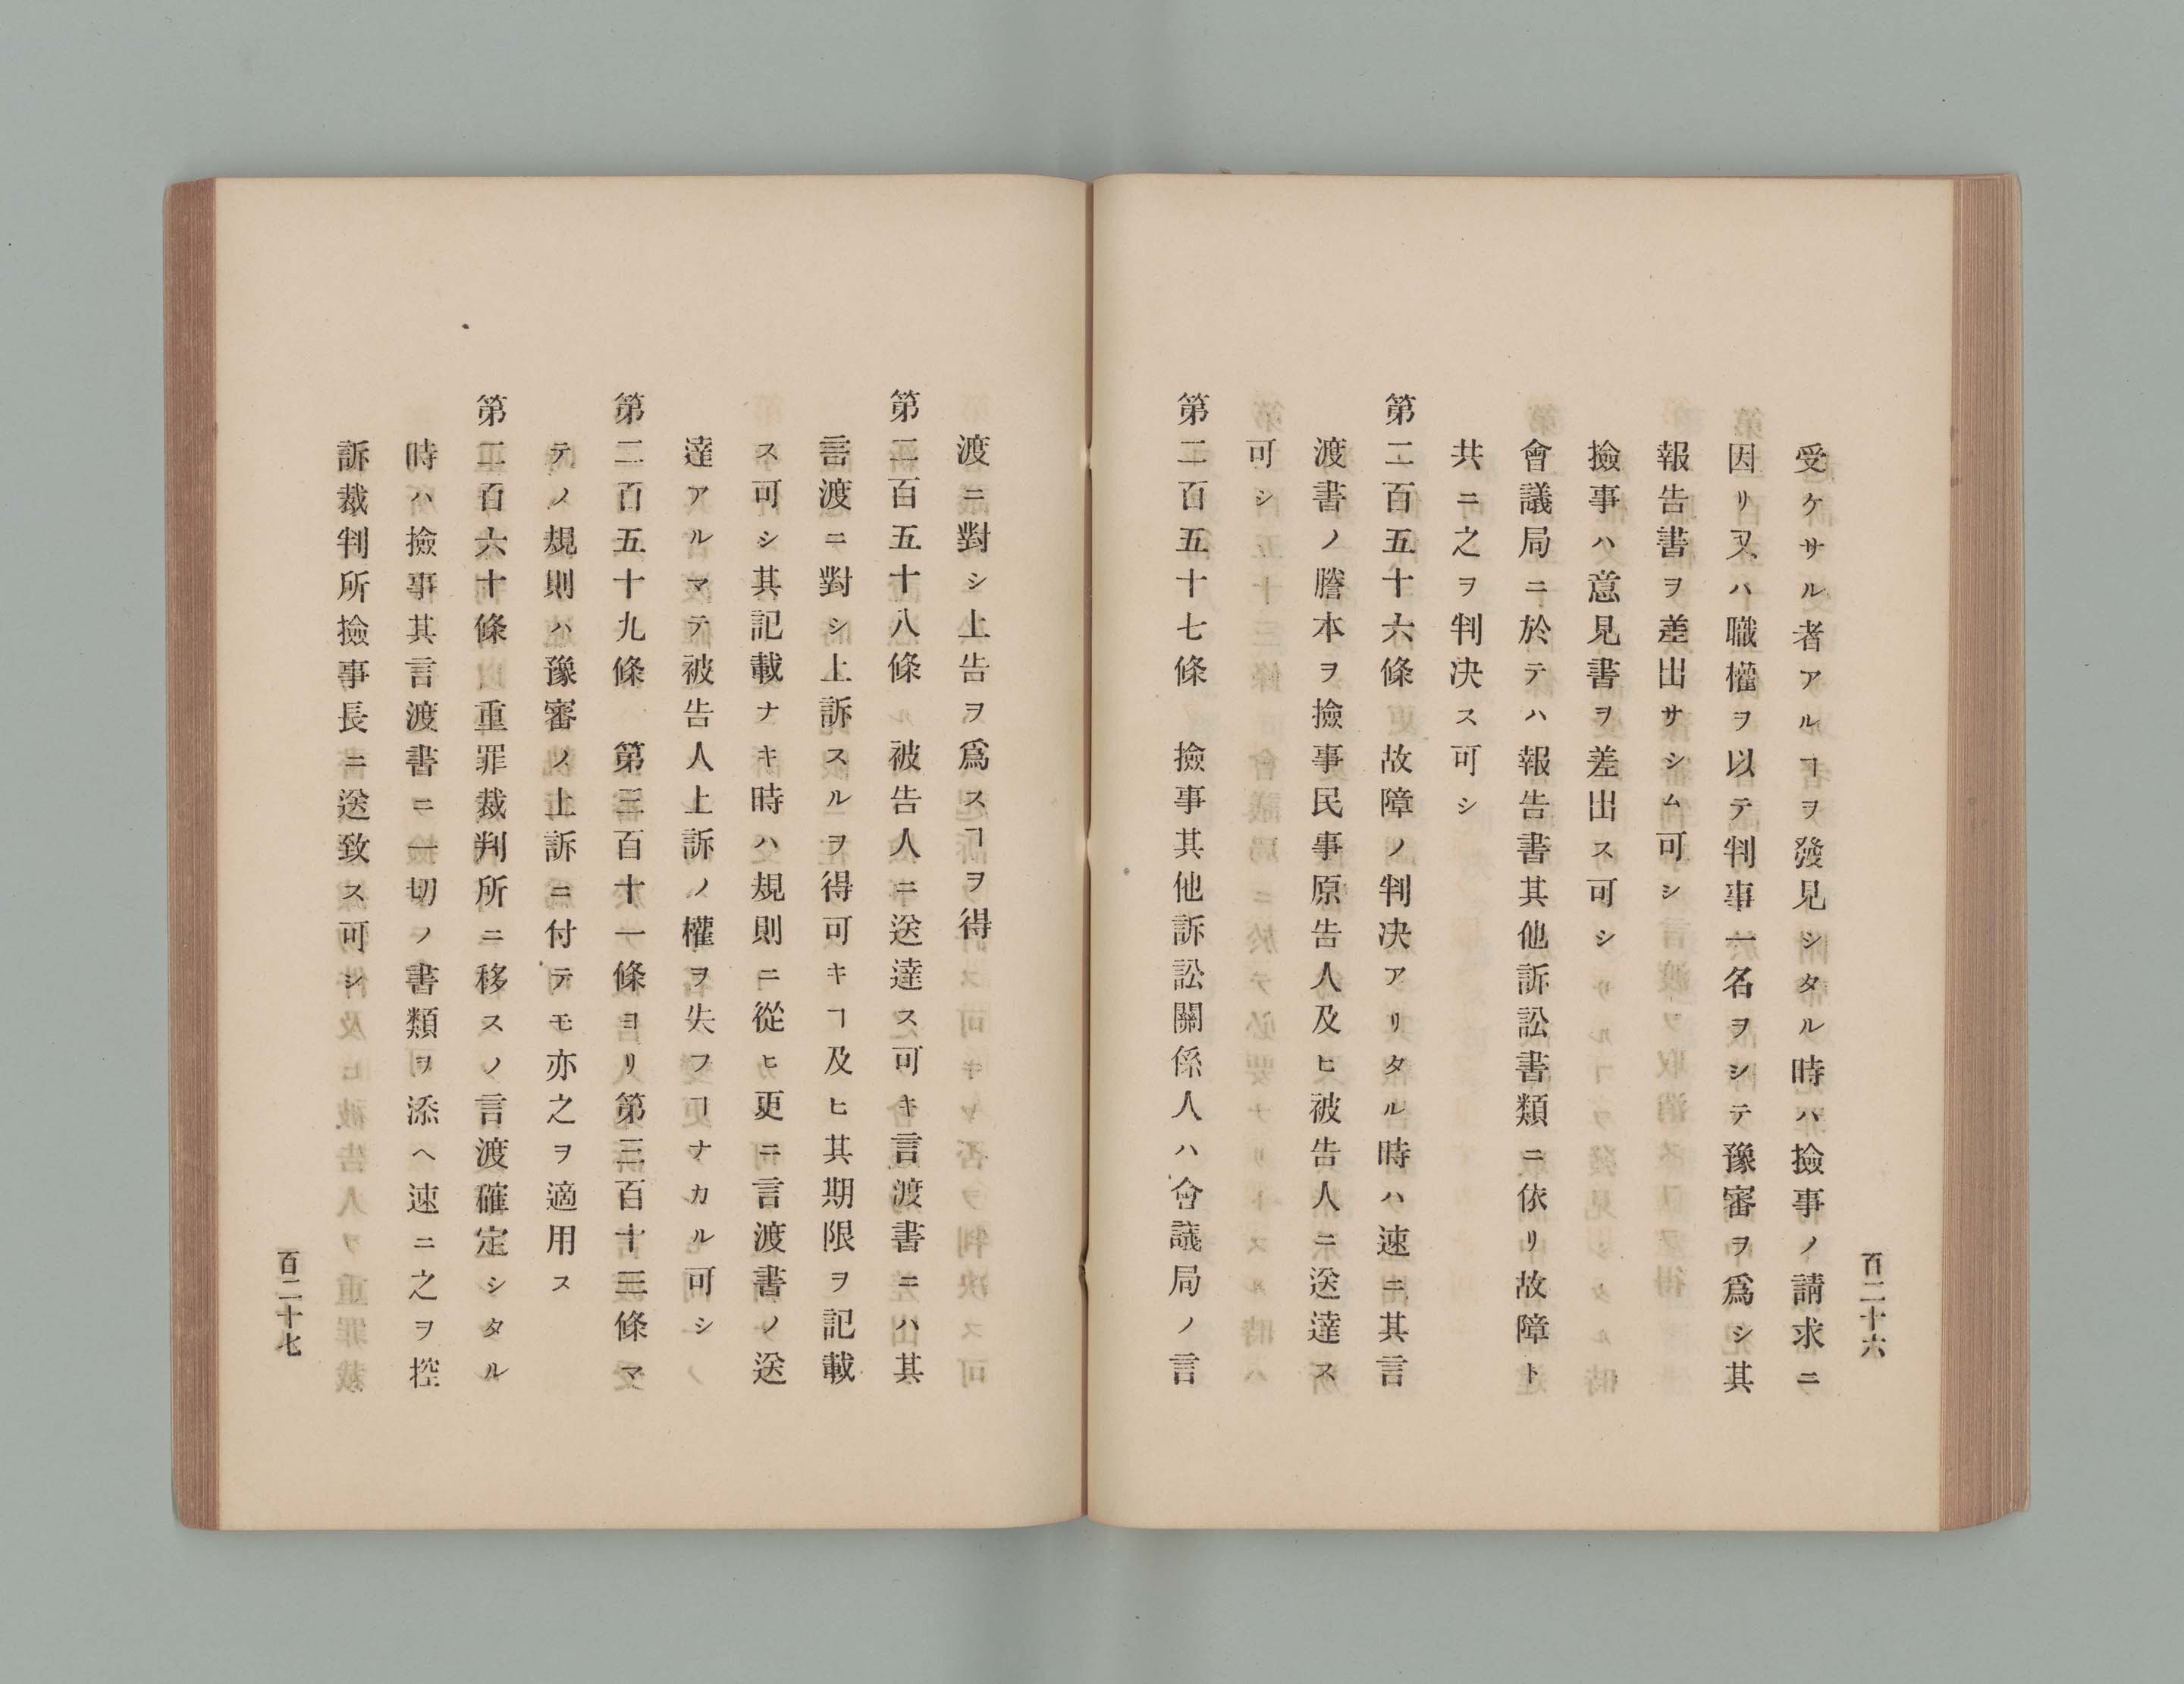 百二十六
受ケサル者アルヿヲ發見シタル時ハ撿事ノ請求ニ
因リ又ハ職權ヲ以テ判事一名ヲシテ豫審ヲ爲シ其
報告書ヲ差出サシム可シ
撿事ハ意見書ヲ差出ス可シ
會議局ニ於テハ報告書其他訴訟書類ニ依リ故障ト
共ニ之ヲ判决ス可シ
第二百五十六條 故障ノ判决アリタル時ハ速ニ其言
渡書ノ謄本ヲ撿事民事原告人及ヒ被告人ニ送達ス
可シ
第二百五十七條 撿事其他訴訟關係人ハ會議局ノ言
渡ニ對シ上告ヲ爲スヿヲ得
第二百五十八條 被告人ニ送達ス可キ言渡書ニハ其
言渡ニ對シ上訴スルヲ得可キヿ及ヒ其期限ヲ記載
ス可シ其記載ナキ時ハ規則ニ從ヒ更ニ言渡書ノ送
達アルマテ被告人上訴ノ權ヲ失フヿナカル可シ
第二百五十九條 第三百十一條ヨリ第三百十三條マ
テノ規則ハ豫審ノ上訴ニ付テモ亦之ヲ適用ス
第二百六十條 重罪裁判所ニ移スノ言渡確定シタル
時ハ撿事其言渡書ニ一切ノ書類ヲ添ヘ速ニ之ヲ控
訴裁判所撿事長ニ送致ス可シ
百二十七